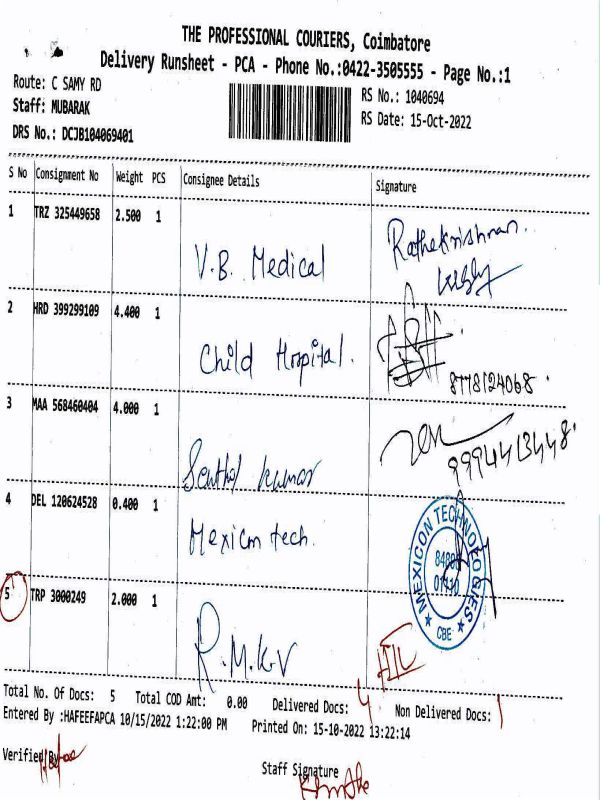 THE PROFESSIONAL COURIERS, Coimbatore
Delivery Runsheet - PCA - Phone No.:0422-3505555 - Page No.:1
Route: C SAMY RD
RS No.: 1040694
Staff: MUBARAK
RS Date: 15-Oct-2022
DRS No.: DCJB104069401
S No Consignment No Weight PCS Consignee Details Signature
1 TRZ 325449658 2.500 1
V.B. Medical Rathakrishnan.
2 HRD 399299109 4.400 1
Child Hospital.
8778124068
3 MAA 568460404 4.000 1
9994413448
Senthil kumar
4 DEL 120624528 0.400 1
Mexicon tech.
MEXICON TECHNOLOGIES
CBE
5 TRP 3000249 2.000 1
R.M.K.V
Total No. Of Docs: 5 Total COD Amt: 0.00 Delivered Docs: 4 Non Delivered Docs: 1
Entered By :HAFEEFAPCA 10/15/2022 1:22:00 PM Printed On: 15-10-2022 13:22:14
Verified By
Staff Signature